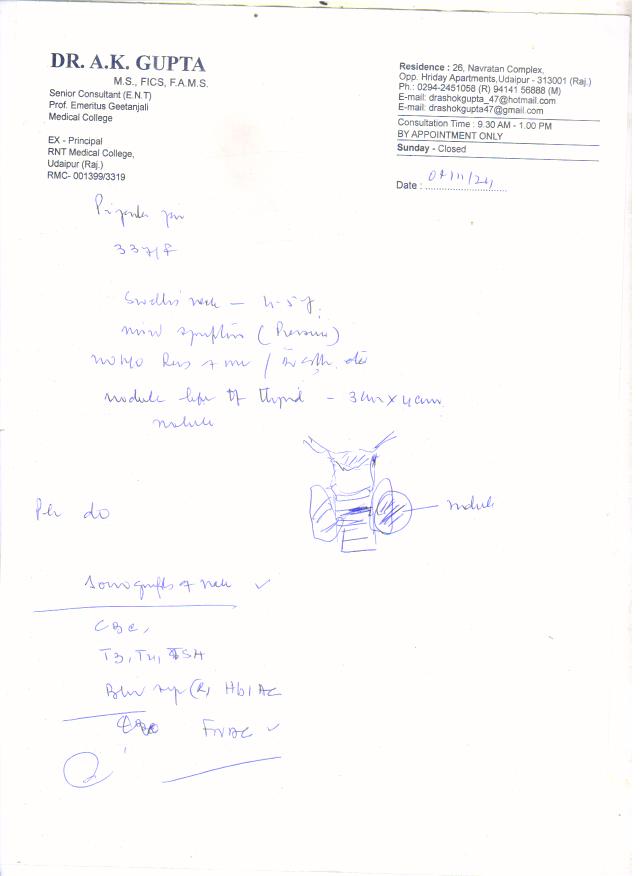 DR. A.K. GUPTA
M.S., FICS, F.A.M.S.
Senior Consultant (E.N.T)
Prof. Emeritus Geetanjali
Medical College
EX - Principal
RNT Medical College,
Udaipur (Raj.)
RMC- 001399/3319
Residence : 26, Navratan Complex,
Opp. Hriday Apartments,Udaipur - 313001 (Raj.)
Ph.: 0294-2451058 (R) 94141 56888 (M)
E-mail: drashokgupta_47@hotmail.com
E-mail: drashokgupta47@gmail.com
Consultation Time : 9.30 AM - 1.00 PM
BY APPOINTMENT ONLY
Sunday - Closed
Date :
33y/F
Swelling neck — 4-5 y.
mild symptoms (Pressure)
nodule left of Thyroid - 3cm x 4cm
nodule
nodule
Pl do
Sonography of neck ✓
CBC,
T3, T4, TSH
HbIAC
FNAC ✓